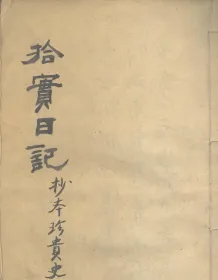 拾實日記
抄本珍貴史